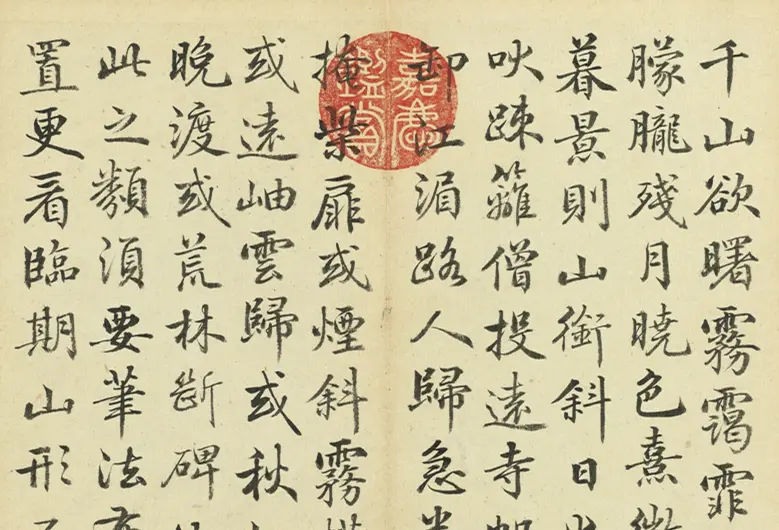 千山欲曙霧靄霏
朦朧殘月曉色熹微
暮景則山銜斜日
吠踈籬僧投遠寺帆
卸江湄路人歸急半
掩柴扉或煙斜霧橫
或遠岫雲歸或秋江
晚渡或荒林斷碑
此之類須要筆法
置更看臨期山形
嘉慶鑑賞